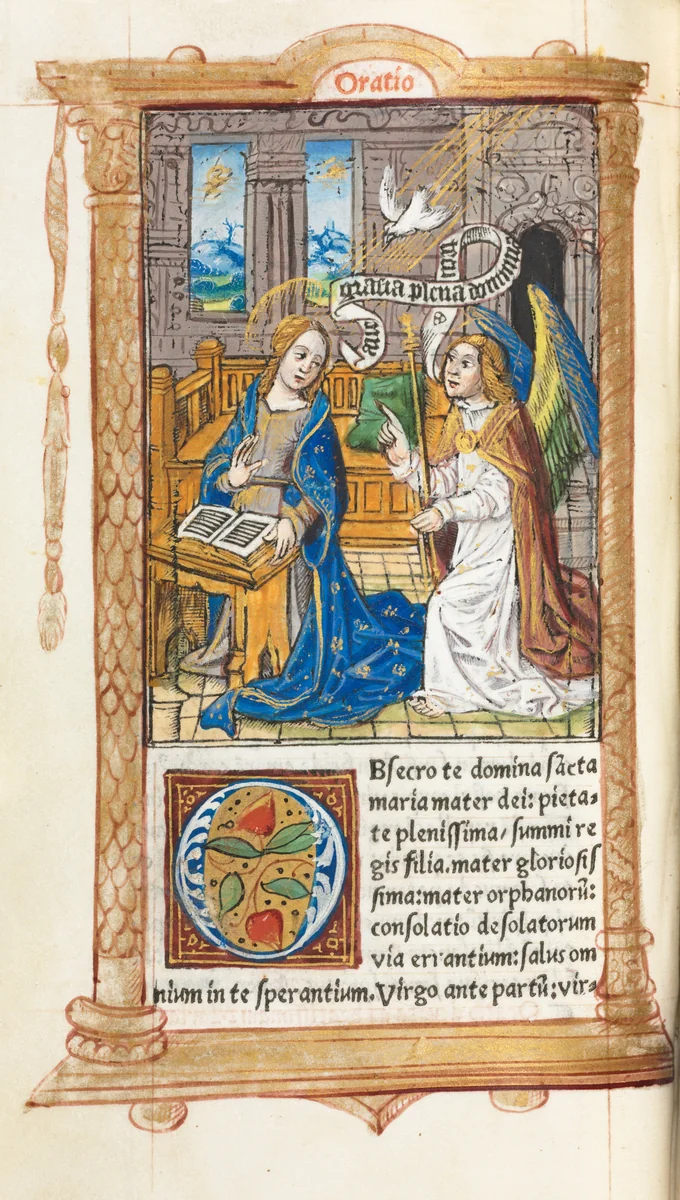 Oratio
aue gracia plena dominus
OBſecro te domina ſācta
maria mater dei: pieta⸗
te pleniſſima/ ſummi re
gis filia.mater glorioſiſ
ſima:mater orphanorū:
conſolatio deſolatorum
via errantium:ſalus om
nium in te ſperantium.Virgo ante partū:vir⸗